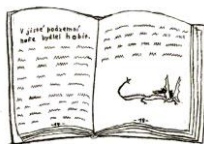 V jisté podzemní
noře bydlel hobit.